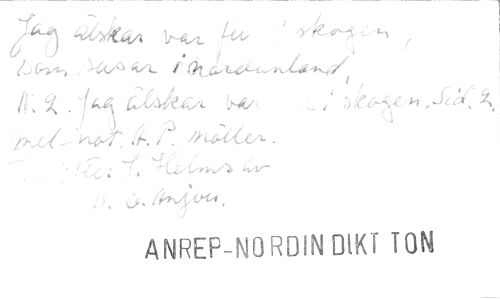 Jag älskar var fu i skogen,
som susar i nordanland,
N. 2. Jag älskar var i skogen. Sid. 2.
mel-not. A. P. Möller.
S. Helms av
ANREP-NORDIN DIKT TON